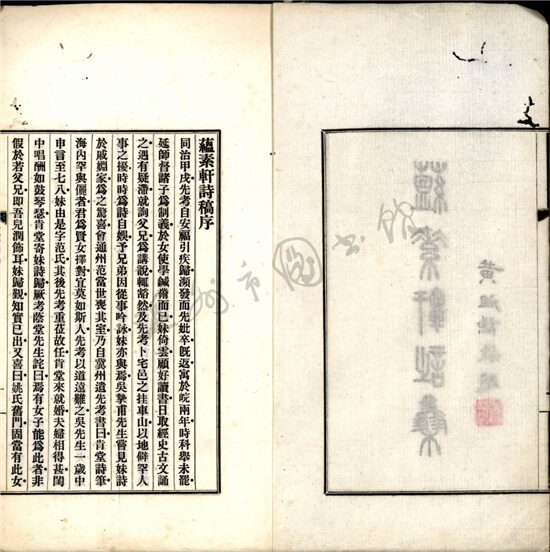 蘊素軒詩集
蘊素軒詩稿序
同治甲戌先考自安福引疾歸瀕發而先妣卒既返寓於皖兩年時科舉未罷
延師督諸子爲制義於女使學鍼黹而已妹倚雲顧好讀書日取經史古文誦
之遇有疑滯就詢父兄爲講說輒豁然及先考卜宅邑之挂車山以地僻罕人
事之擾時時爲詩自娛予兄弟因從事吟詠妹亦與焉吳摯甫先生嘗見妹詩
於戚姻家爲之驚喜會通州范當世喪其室乃自冀州遺先考書曰肯堂詩筆
海內罕與儷者君爲賢女擇對宜莫如斯人先考以道遠難之吳先生一歲中
申言至七八妹由是字范氏其後先考重莅故任肯堂來就婚夫婦相得甚閨
中唱酬如鼓琴瑟肯堂寄妹詩歸厥考蔭堂先生詫曰焉有女子能爲此者非
假於若父兄卽吾兒潤飾耳妹歸覲知實已出又喜曰姚氏舊門固當有此女
州市圖書館